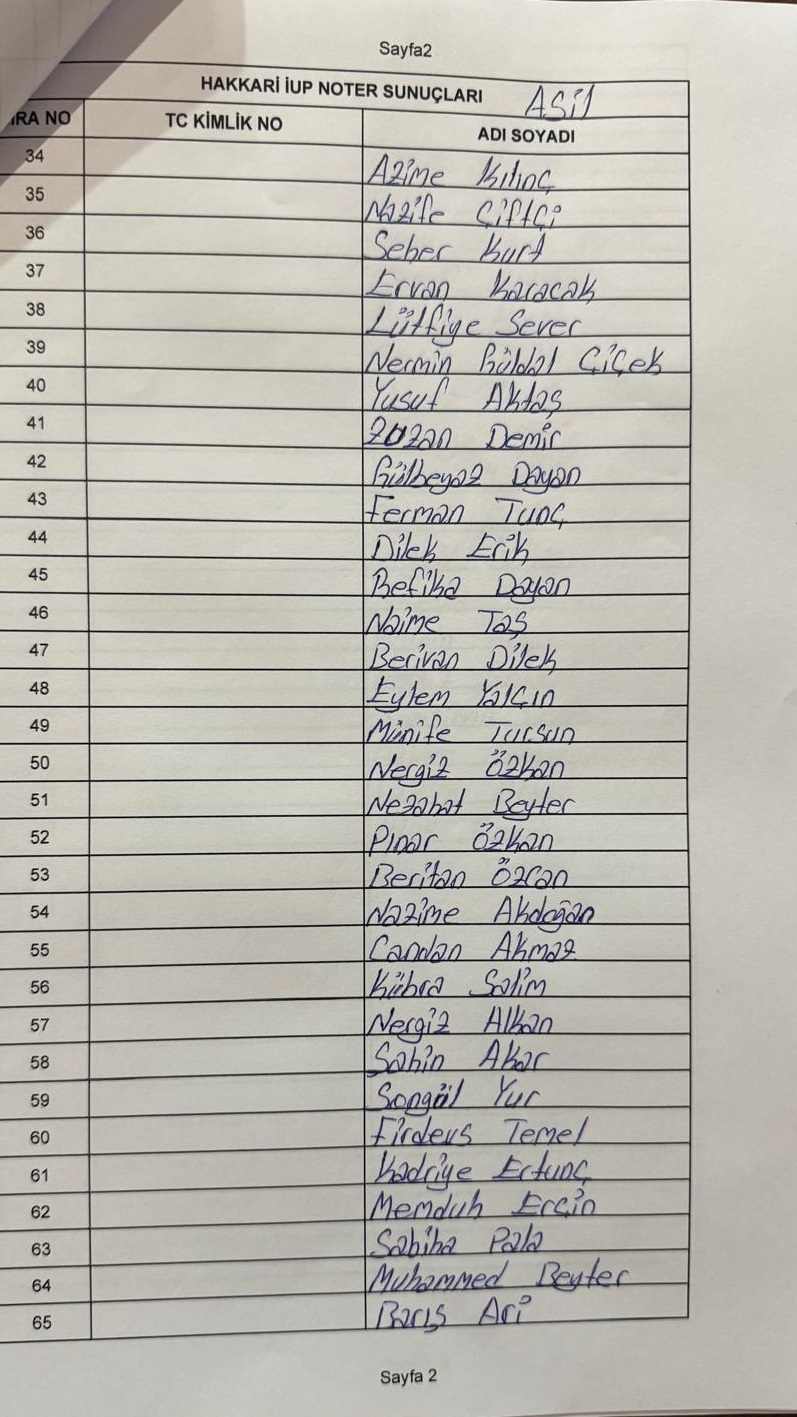 Sayfa2
HAKKARİ İUP NOTER SUNUÇLARI ASİl
IRA NO TC KİMLİK NO ADI SOYADI
34 Azime Kılınç
35 Nazife Çiftçi
36 Seher Kurt
37 Ervan Karacak
38 Lütfiye Sever
39 Nermin Güldal Çiçek
40 Yusuf Aktaş
41 Zozan Demir
42 Gülbeyaz Dayan
43 Ferman Tunç
44 Dilek Erik
45 Refika Dayan
46 Naime Taş
47 Berivan Dilek
48 Eylem Yalçın
49 Münife Tursun
50 Nergiz Özkan
51 Nezahat Beyter
52 Pınar Özkan
53 Beritan Özcan
54 Nazime Akdoğan
55 Candan Akmaz
56 Kübra Salim
57 Nergiz Alkan
58 Şahin Akar
59 Songül Yur
60 Firdevs Temel
61 Kadriye Ertunç
62 Memduh Erçin
63 Sabiha Pala
64 Muhammed Beyter
65 Barış Ari
Sayfa 2